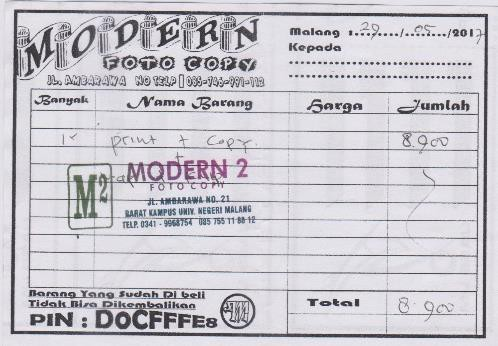 MODERN
FOTO COPY
JL. AMBARAWA NO TELP 085-746-991-112
Malang : 29 / 05 / 2017
Kepada
Banyak Nama Barang Harga Jumlah
print + copy. 8.900
+
M2
MODERN 2
FOTO COPY
JL. AMBARAWA NO. 21
BARAT KAMPUS UNIV. NEGERI MALANG
TELP. 0341 - 9968754 085 755 11 88 12
Barang Yang Sudah Di beli
Tidak Bisa Dikembalikan
PIN : DOCFFFE8
Total 8.900